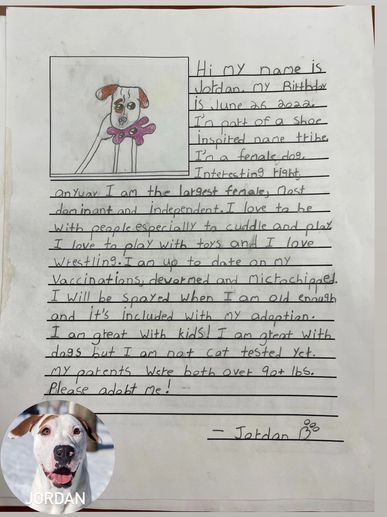 Hi my name is
Jordan. my Birthday
is June 26 2022.
I'm part of a shoe
Inspired name tribe.
I'm a female dog,
Interesting right,
anyway I am the largest female, most
dominant and independent. I love to be
with people especially to cuddle and play
I love to play with toys and I love
wrestling. I am up to date on my
vaccinations, dewormed and microchipped.
I will be spayed when I am old enough
and it's included with my adoption.
I am great with kids! I am great with
dogs but I am not cat tested yet.
my parents were both over 90+ lbs.
Please adobt me!
- Jordan
JORDAN